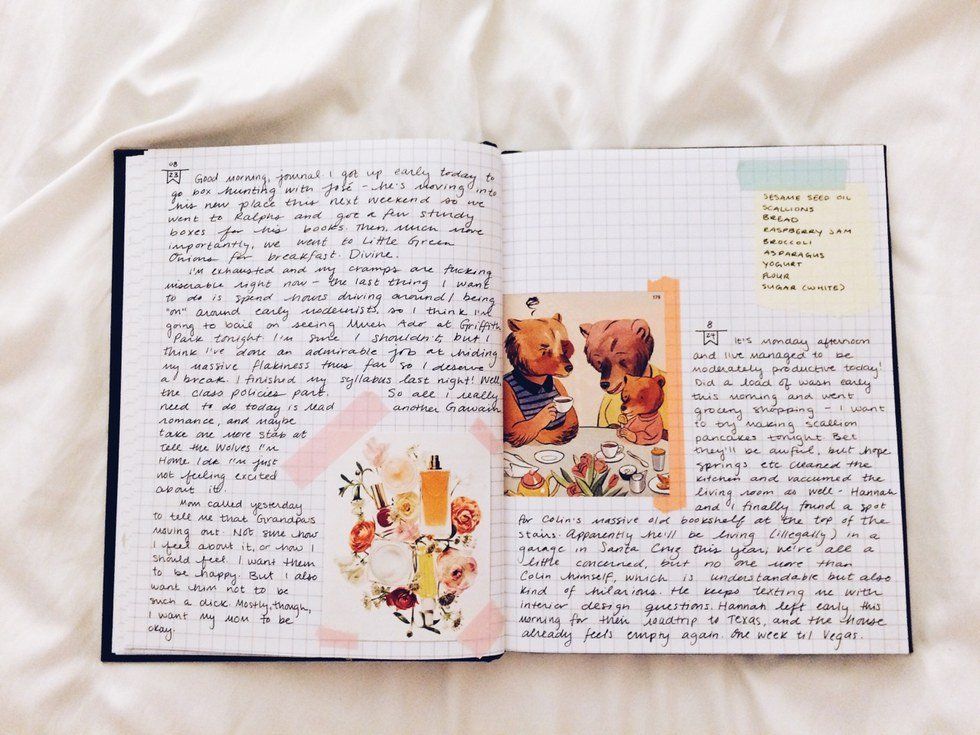 08
23
Good morning, journal! I got up early today to
go box hunting with José - he's moving into
his new place this next weekend so we
went to Ralphs and got a few sturdy
boxes for his books. Then, much more
importantly, we went to Little Green
Onions for breakfast. Divine.
I'm exhausted and my cramps are fucking
miserable right now - the last thing I want
to do is spend hours driving around/being
"on" around early modernists, so I think I'm
going to bail on seeing Much Ado at Griffith
Park tonight. I'm sure I shouldn't, but I
think I've done an admirable job at hiding
my massive flakiness thus far so I deserve
a break. I finished my syllabus last night! Well,
the class policies part. So all I really
need to do today is read another Gawain
romance, and maybe
take one more stab at
Tell the Wolves I'm
Home. Idk I'm just
not feeling excited
about it.
Mom called yesterday
to tell me that Grandpa's
moving out. Not sure how
I feel about it, or how I
should feel. I want them
to be happy. But I also
want him not to be
such a dick. Mostly, though,
I want my mom to be
okay.
SESAME SEED OIL
SCALLIONS
BREAD
RASPBERRY JAM
BROCCOLI
ASPARAGUS
YOGURT
FLOUR
SUGAR (WHITE)
179
8
24
It's monday afternoon
and I've managed to be
moderately productive today!
Did a load of wash early
this morning and went
grocery shopping - I want
to try making scallion
pancakes tonight. Bet
they'll be awful, but hope
springs etc. Cleaned the
kitchen and vacuumed the
living room as well - Hannah
and I finally found a spot
for Colin's massive old bookshelf at the top of the
stairs. Apparently he'll be living (illegally) in a
garage in Santa Cruz this year, we're all a
little concerned, but no one more than
Colin himself, which is understandable but also
kind of hilarious. He keeps texting me with
interior design questions. Hannah left early this
morning for their roadtrip to Texas, and the house
already feels empty again. One week til Vegas.